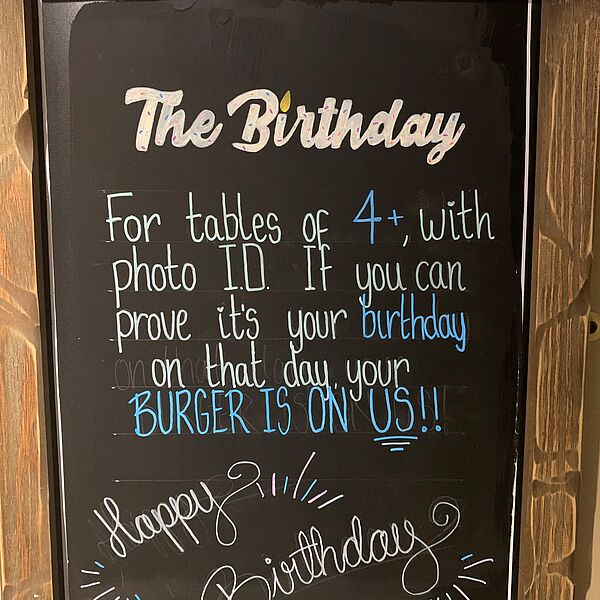 The Birthday
For tables of 4+, with
photo I.D. If you can
prove it's your birthday
on that day, your
BURGER IS ON US!!
Happy
Birthday